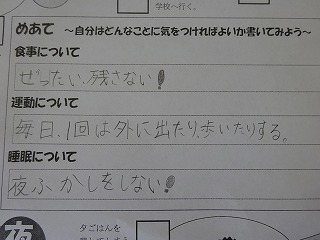 学校へ行く。
めあて ～自分はどんなことに気をつければよいか書いてみよう～
食事について
ぜったい、残さない!
運動について
毎日、1回は外に出たり、歩いたりする。
睡眠について
夜ふかしをしない!
夜
夕ごはんを